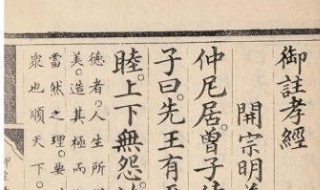 御註孝經
開宗明義
仲尼居。曾子侍
子曰。先王有至
睦。上下無怨。
德者。人生所
美。造其極而
當然之理。要
衆也順天下。